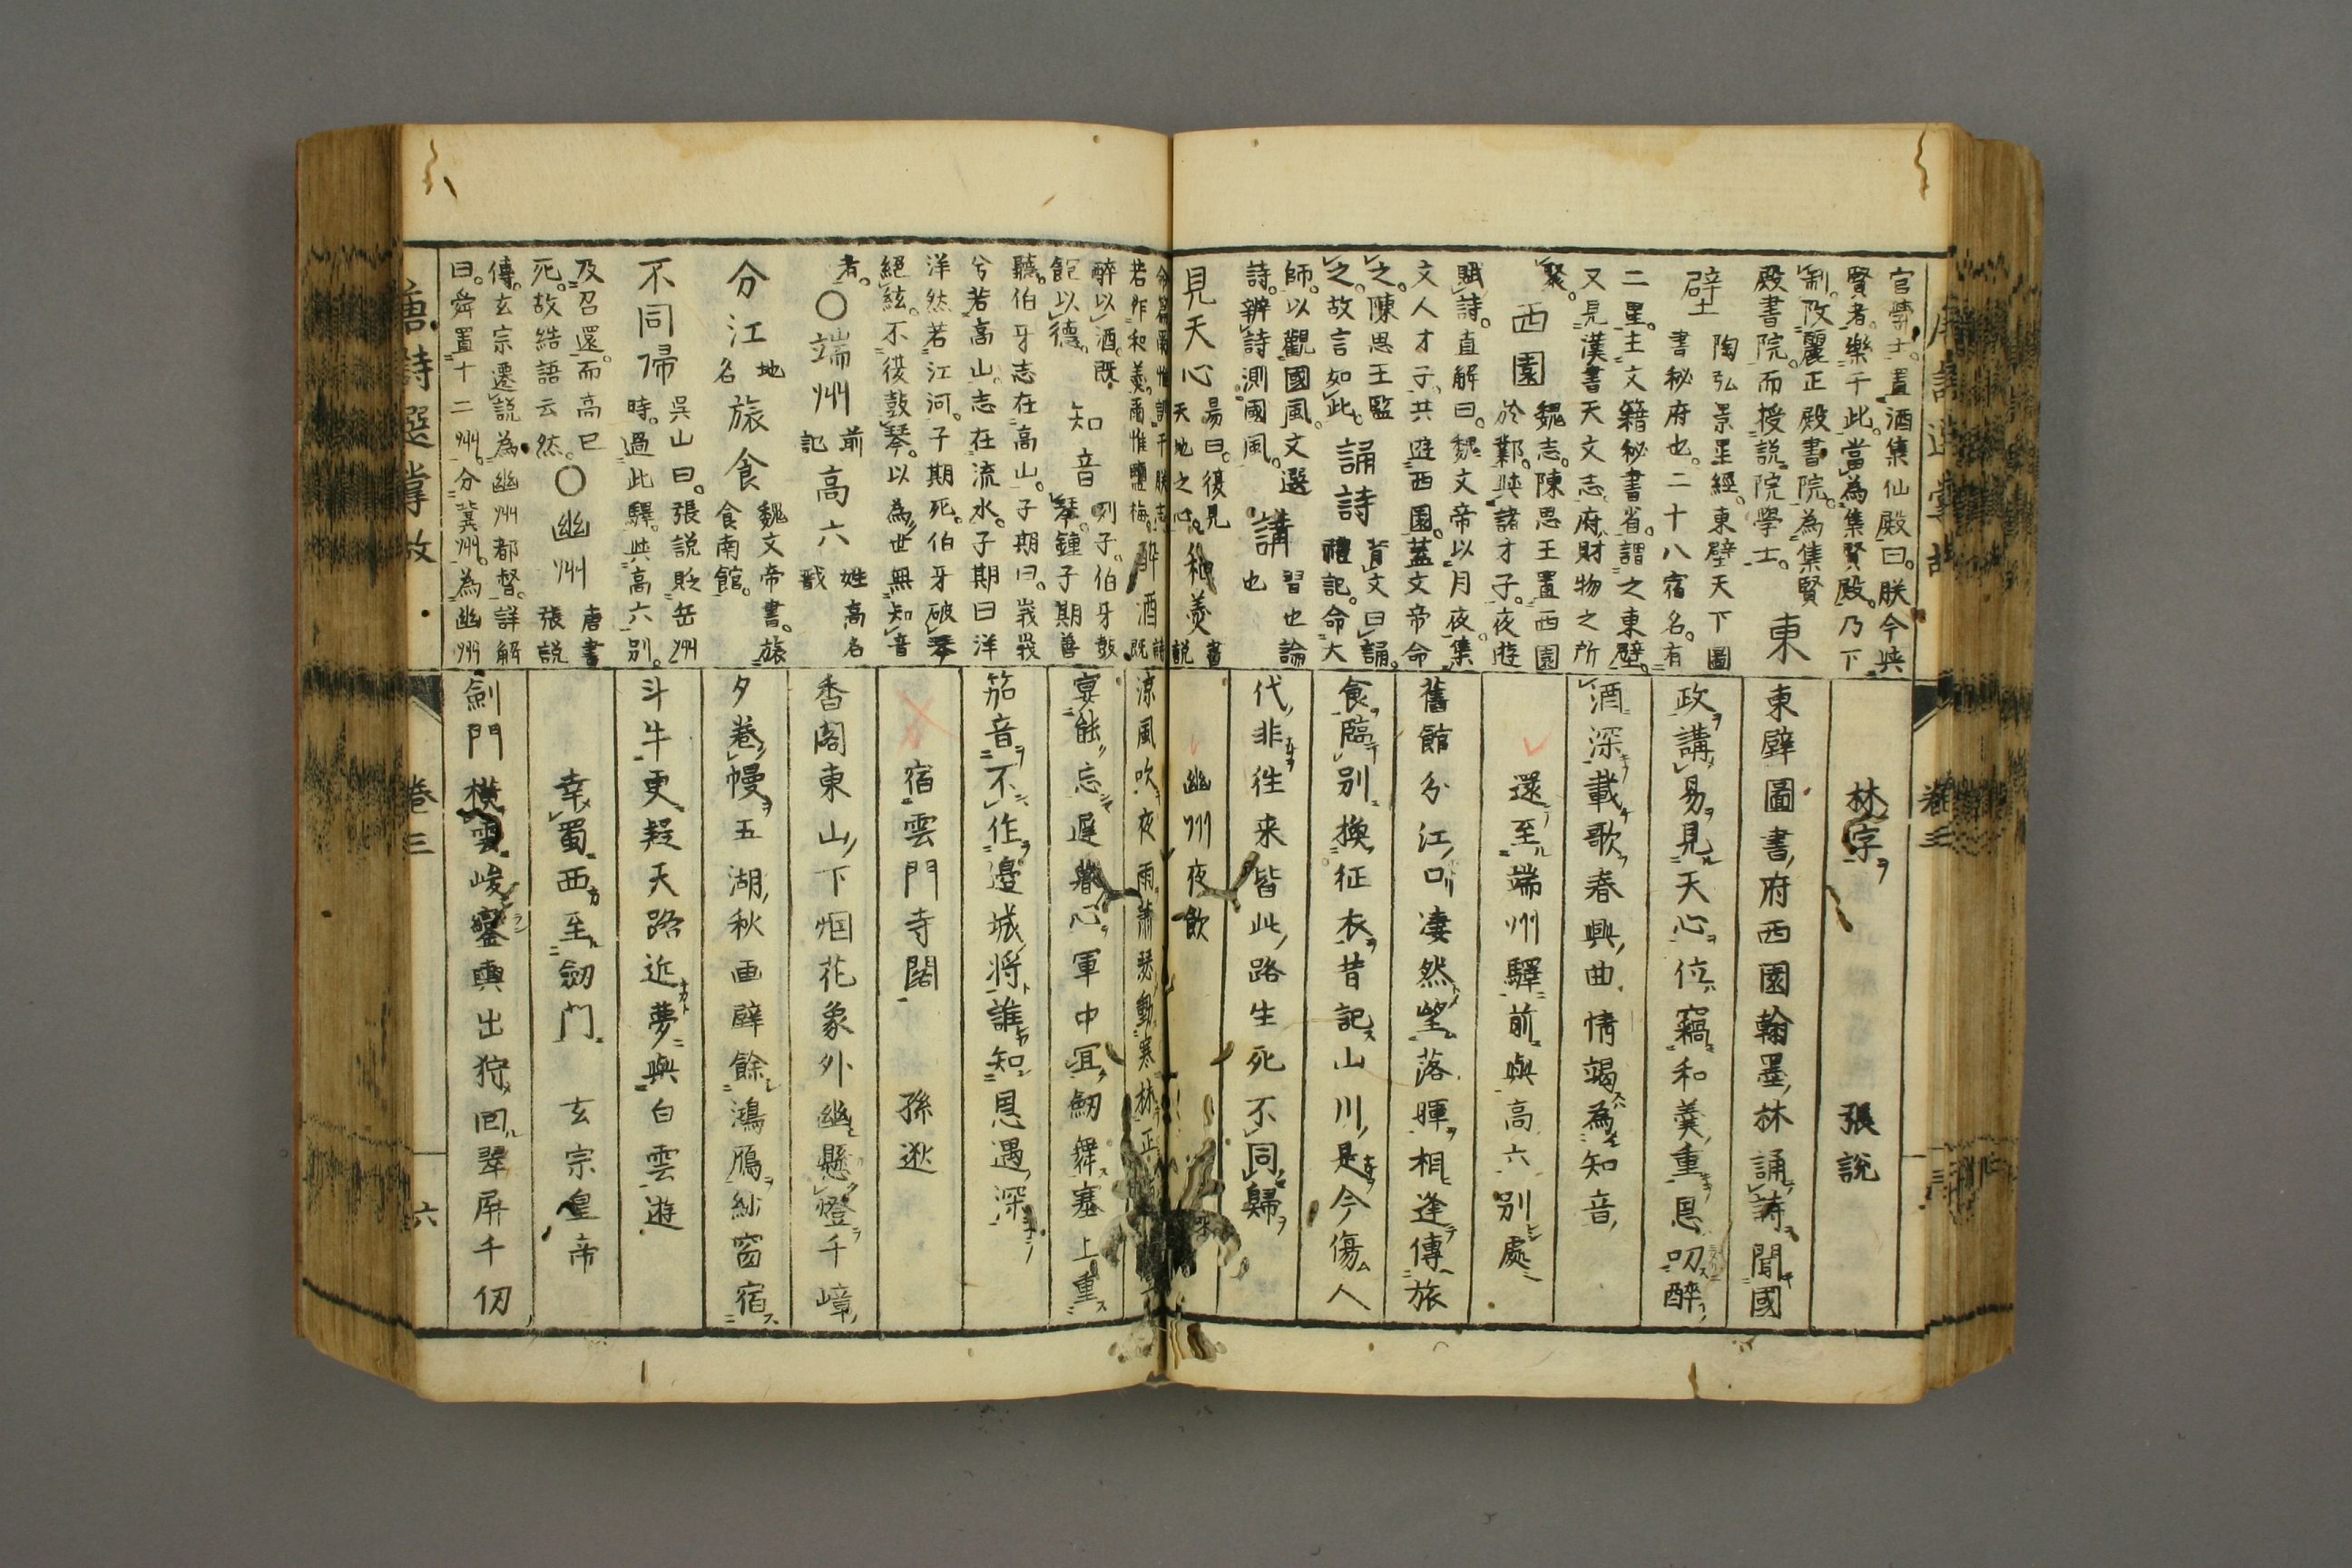 官學士。置酒集仙殿曰。朕今與
賢者。樂于此。當為集賢殿。乃下
制。改麗正殿書院。為集賢
殿書院。而授說院學士。
東
壁
陶弘景星經。東壁天下圖
書秘府也。二十八宿名。有
二星。主文籍秘書省。謂之東壁。
又見漢書天文志。府財物之所
聚。
西園
魏志。陳思王置西園
於鄴。與諸才子。夜遊
賦詩。直解曰。魏文帝以月夜。集
文人才子。共遊西園。蓋文帝命
之。陳思王監
之。故言如此。
誦詩
背文曰誦。
禮記。命大
師。以觀國風。文選
詩。辨詩測國風。
講
習也論
也
見天心
易曰。復見
天地之心。
和羹
書
說
林字
張說
東壁圖書府西園翰墨林誦詩聞國
政講易見天心位竊和羹重恩叨醉
酒深載歌春興曲情竭為知音
還至端州驛前與高六別處
舊館分江口凄然望落暉相逢傳旅
食臨別換征衣昔記山川是今傷人
代非往來皆此路生死不同歸
幽州夜飲
若作和羹。爾惟鹽梅。
酔酒
詩
既
醉以酒。既
飽以德。
知音
列子。伯牙鼓
琴。鍾子期善
聽。伯牙志在高山。子期曰。峩峩
兮若高山。志在流水。子期曰洋
洋然若江河。子期死。伯牙破琴
絕絃。不復鼓琴。以為世無知音
者。
○端州
前
記
高六
姓高名
戩
分江
地
名
旅食
魏文帝書。旅
食南館。
不同帰
吳山曰。張說貶岳州
時。過此驛。與高六別。
及召還。而高已
死。故結語云然。
○幽州
唐書
張說
傳。玄宗遷說為幽州都督。詳解
曰。舜置十二州。分冀州。為幽州
唐詩選掌故
卷三
六
涼風吹夜雨蕭瑟動寒林正
宴能忘遲暮心軍中宜劒舞塞上重
笳音不作邊城將誰知恩遇深
宿雲門寺閣
孫逖
香閣東山下烟花象外幽懸燈千嶂
夕卷幔五湖秋画壁餘鴻鴈紗窗宿
斗牛更疑天路近夢與白雲遊
幸蜀西至劒門
玄宗皇帝
劍門橫雲峻鑾輿出狩回翠屏千仞